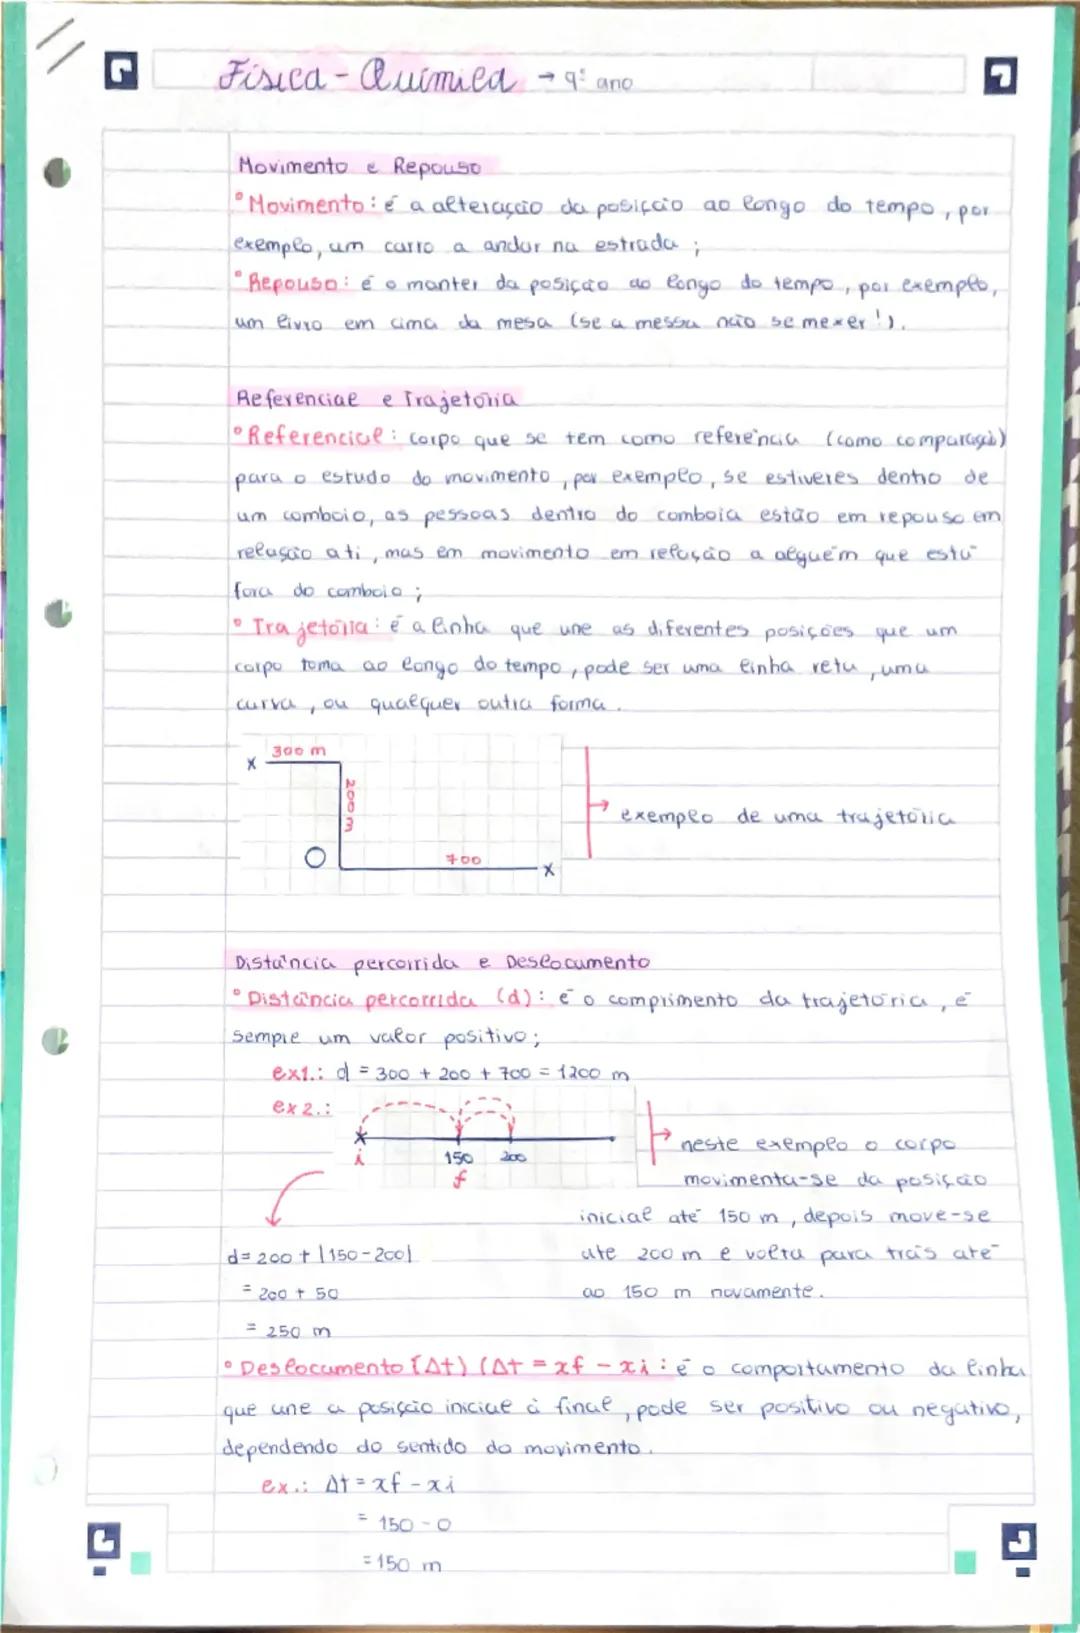 Física-Química → 9º ano
Movimento e Repouso
° Movimento: é a alteração da posição ao longo do tempo, por
exemplo, um carro a andar na estrada;
° Repouso: é o manter da posição ao longo do tempo, por exemplo,
um livro em cima da mesa (se a messa não se mexer!).
Referencial e Trajetória
° Referencial: corpo que se tem como referência (como comparação)
para o estudo do movimento, por exemplo, se estiveres dentro de
um comboio, as pessoas dentro do comboia estão em repouso em
relação a ti, mas em movimento em relação a alguém que está
fora do comboio;
° Trajetória: é a linha que une as diferentes posições que um
corpo toma ao longo do tempo, pode ser uma linha reta, uma
curva, ou qualquer outra forma.
x 300 m
200 m
700 x
→ exemplo de uma trajetória
Distância percorrida e Deslocamento
° Distância percorrida (d): é o comprimento da trajetória, é
sempre um valor positivo;
ex1.: d = 300 + 200 + 700 = 1200 m
ex2.:
i 150 200
f
→ neste exemplo o corpo
movimenta-se da posição
inicial até 150 m, depois move-se
até 200 m e volta para trás até
ao 150 m novamente.
d= 200 + |150-200|
= 200 + 50
= 250 m
° Deslocamento (Δt) (Δt = xf - xi: é o comportamento da linha
que une a posição inicial à final, pode ser positivo ou negativo,
dependendo do sentido do movimento.
ex.: Δt = xf - xi
= 150 - 0
= 150 m